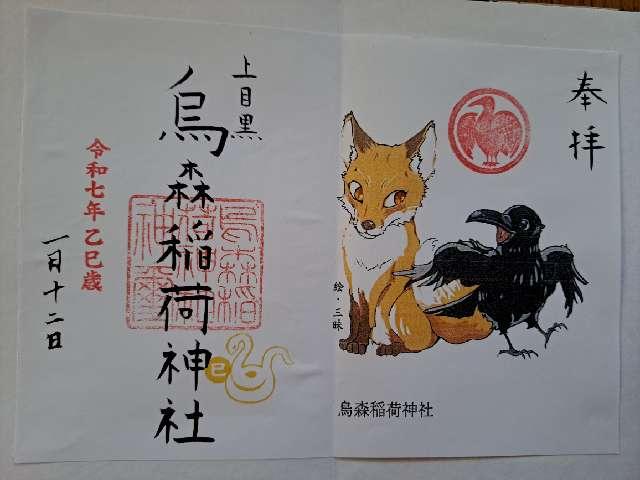 奉拝
上目黒
烏森稲荷神社
令和七年乙巳歳
一月十二日
巳
絵・三昧
烏森稲荷神社